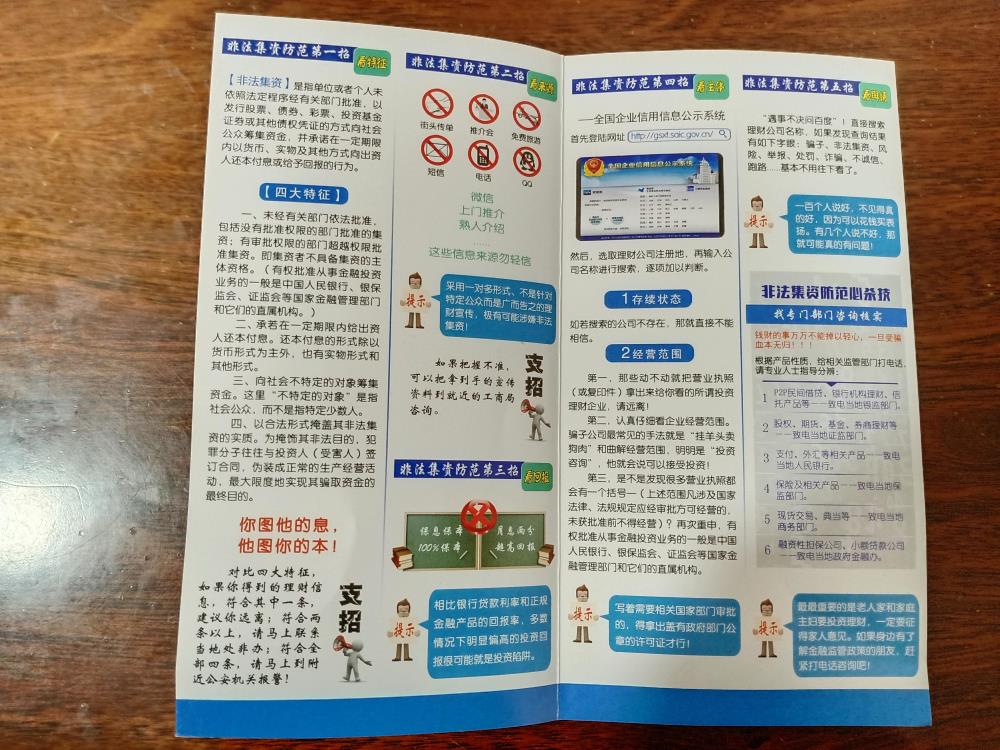 非法集资防范第一招
看特征
【非法集资】是指单位或者个人未
依照法定程序经有关部门批准，以
发行股票、债券、彩票、投资基金
证券或其他债权凭证的方式向社会
公众筹集资金，并承诺在一定期限
内以货币、实物及其他方式向出资
人还本付息或给予回报的行为。
【四大特征】
一、未经有关部门依法批准，
包括没有批准权限的部门批准的集
资；有审批权限的部门超越权限批
准集资。即集资者不具备集资的主
体资格。（有权批准从事金融投资
业务的一般是中国人民银行、银保
监会、证监会等国家金融管理部门
和它们的直属机构。）
二、承诺在一定期限内给出资
人还本付息。还本付息的形式除以
货币形式为主外，也有实物形式和
其他形式。
三、向社会不特定的对象筹集
资金。这里“不特定的对象”是指
社会公众，而不是指特定少数人。
四、以合法形式掩盖其非法集
资的实质。为掩饰其非法目的，犯
罪分子往往与投资人（受害人）签
订合同，伪装成正常的生产经营活
动，最大限度地实现其骗取资金的
最终目的。
你图他的息，
他图你的本！
对比四大特征，
如果你得到的理财信
息，符合其中一条，
建议你远离；符合两
条以上，请马上联系
当地处非办；符合全
部四条，请马上到附
近公安机关报警！
支招
非法集资防范第二招
看来源
街头传单
推介会
免费旅游
短信
电话
QQ
微信
上门推介
熟人介绍
……
这些信息来源勿轻信
提示
采用一对多形式、不是针对
特定公众而是广而告之的理
财宣传，极有可能涉嫌非法
集资！
如果把握不准，
可以把拿到手的宣传
资料到就近的工商局
咨询。
支招
非法集资防范第三招
看回报
保息保本
100%保本
月息两分
超高回报
提示
相比银行贷款利率和正规
金融产品的回报率，多数
情况下明显偏高的投资回
报很可能就是投资陷阱。
非法集资防范第四招
看主体
——全国企业信用信息公示系统
首先登陆网址
http://gsxt.saic.gov.cn/
全国企业信用信息公示系统
然后，选取理财公司注册地，再输入公
司名称进行搜索，逐项加以判断。
1 存续状态
如若搜索的公司不存在，那就直接不能
相信。
2 经营范围
第一，那些动不动就把营业执照
（或复印件）拿出来给你看的所谓投资
理财企业，请远离！
第二，认真仔细看企业经营范围。
骗子公司最常见的手法就是“挂羊头卖
狗肉”和曲解经营范围，明明是“投资
咨询”，他就会说可以接受投资！
第三，是不是发现很多营业执照都
会有一个括号—（上述范围凡涉及国家
法律、法规规定应经审批方可经营的，
未获批准前不得经营）？再次重申，有
权批准从事金融投资业务的一般是中国
人民银行、银保监会、证监会等国家金
融管理部门和它们的直属机构。
提示
写着需要相关国家部门审批
的，得拿出盖有政府部门公
章的许可证才行！
非法集资防范第五招
看舆情
“遇事不决问百度”！直接搜索
理财公司名称，如果发现查询结果
有如下字眼：骗子、非法集资、风
险、举报、处罚、诈骗、不诚信、
跑路……基本不用往下看了。
提示
一百个人说好，不见得真
的好，因为可以花钱买表
扬。有几个人说不好，那
就可能真的有问题！
非法集资防范必杀技
找专门部门咨询核实
钱财的事万万不能掉以轻心，一旦受骗
血本无归！！！
根据产品性质，给相关监管部门打电话，
请专业人士指导分辨：
1 P2P民间借贷、银行机构理财、信
托产品等——致电当地银监部门。
2 股权、期货、基金、券商理财等
——致电当地证监部门。
3 支付、外汇等相关产品——致电
当地人民银行。
4 保险及相关产品——致电当地保
监部门。
5 现货交易、典当等——致电当地
商务部门。
6 融资性担保公司、小额贷款公司
——致电当地政府金融办。
提示
最最重要的是老人家和家庭
主妇要投资理财，一定要征
得家人意见。如果身边有了
解金融监管政策的朋友，赶
紧打电话咨询吧！